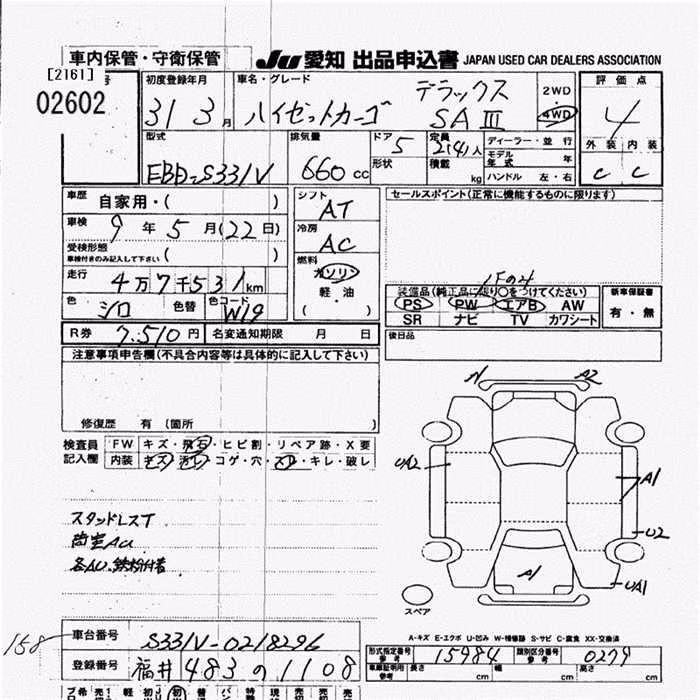 車内保管・守衛保管 JU 愛知 出品申込書 JAPAN USED CAR DEALERS ASSOCIATION
[2161] 号
02602
初度登録年月 車名・グレード 評価点
31 3月 ハイゼットカーゴ デラックス SAⅢ 2WD 4WD 4
型式 排気量 ドア 定員 ディーラー・並行 外装 内装
EBD-S331V 660cc 5 2(4)人 モデル年式 年 C C
形状 積載 kg ハンドル 左・右
車歴 自家用・( ) シフト AT セールスポイント(正常に機能するものに限ります)
車検 9年5月(22日) 冷房 AC
受検形態
車検付きのみ記入して下さい ( ) 燃料
走行 4万7千531km ガソリン
軽・油
( )
1Fのみ
装備品(純正品に限り○をつけてください) 新車保証書
PS PW エアB AW 有・無
SR ナビ TV カワシート
色 シロ 色替 色コード W19
R券 7,510円 名変通知期限 月 日 後日品
注意事項申告欄(不具合内容等は具体的に記入して下さい)
修復歴 有(箇所 )
検査員 FW キズ・飛石・ヒビ割・リペア跡・X要
記入欄 内装 キズ・汚レ・コゲ・穴・スレ・キレ・破レ
A A2
UA2 A1
U2
A1 UA1
スペア
スタッドレスT
荷室AU
各AU、鉄粉付着
A-キズ E-エクボ U-凹み W-補修跡 S-サビ C-腐食 XX-交換済
158 車台番号 S331V-0218296
形式指定番号 参考 15984 類別区分番号 参考 0279
登録番号 福井483の1108
車庫証明用 参考 長さ cm 幅 cm 高さ cm